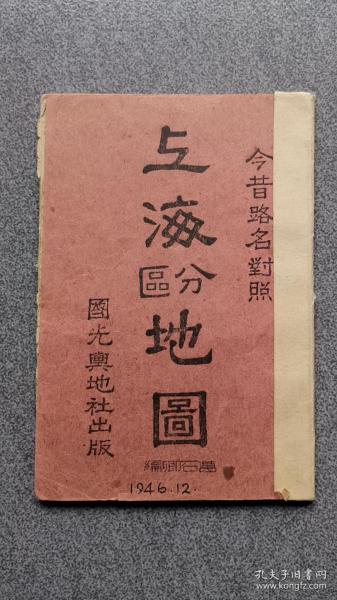 今昔路名對照
上海
分區
地圖
國光輿地社出版
葛石卿編
1946.12.
孔夫子旧书网
www.kongfz.com